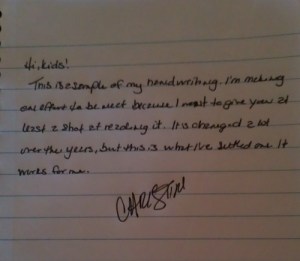 Hi, kids!
This is a sample of my handwriting. I'm making
an effort to be neat because I want to give you at
least a shot at reading it. It is changed a lot
over the years, but this is what I've settled on. It
works for me.
CHRISTINE